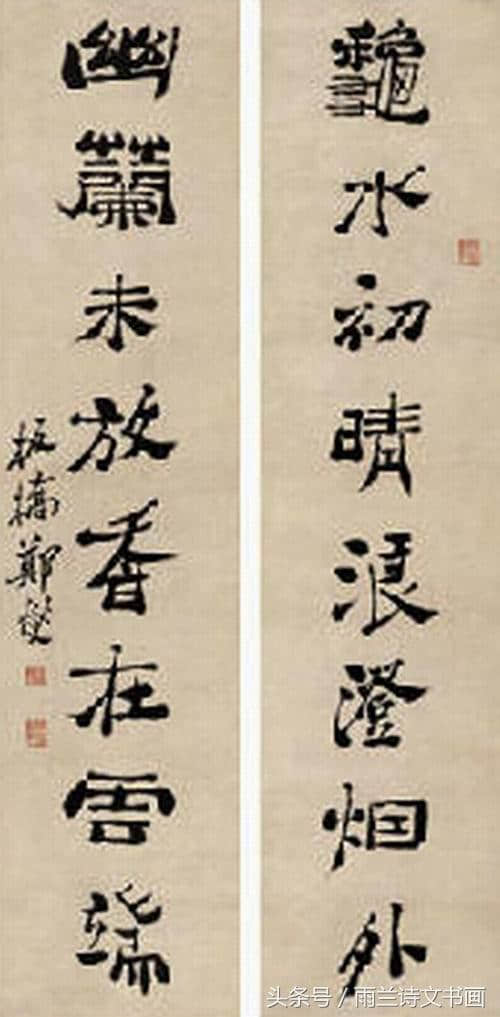 龜水初晴浪澄烟外
幽蘭未放香在雲端
板橋鄭燮
头条号 / 雨兰诗文书画